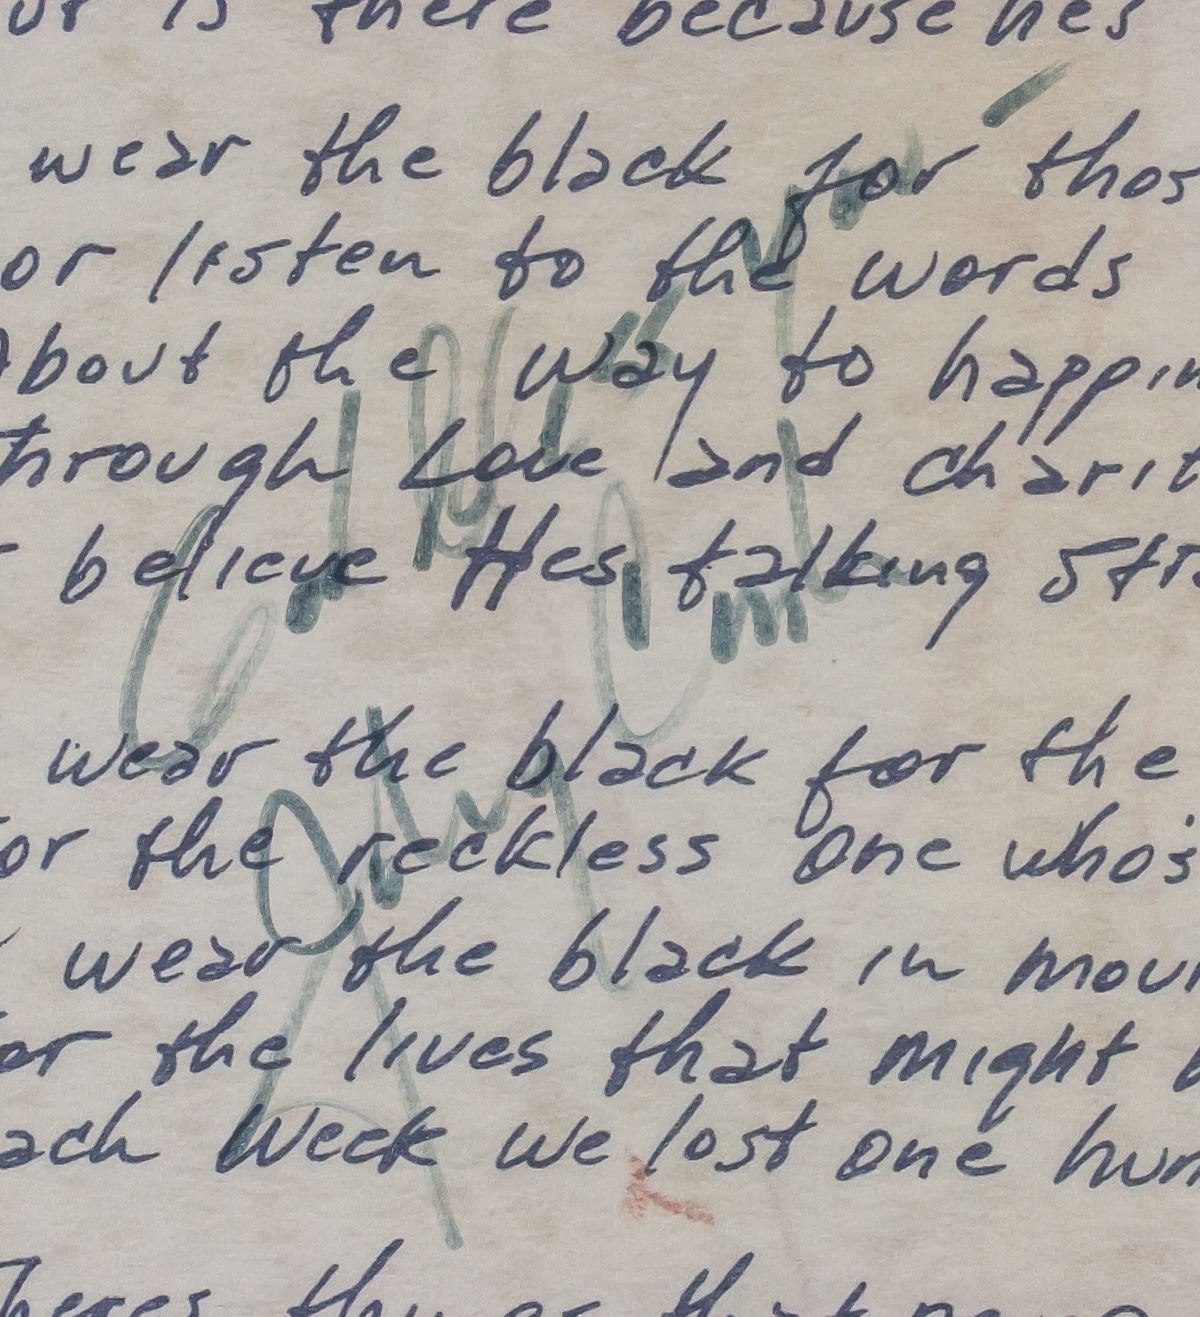 ur is there because hes
wear the black for thos
or listen to the words
About the way to happin
through Love and charit
believe Hes talking stra
wear the black for the
or the reckless one who's
wear the black in mour
for the lives that might b
ach Week we lost one hun
Theres things that